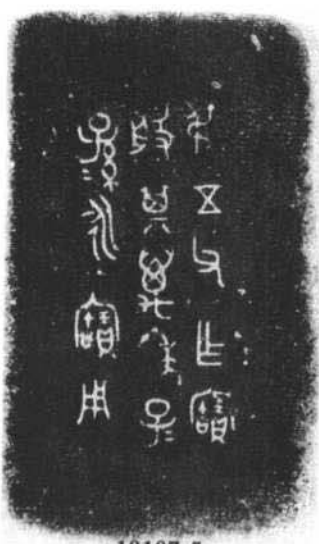 弔五父乍寶
般其萬年子=
孫=永寶用